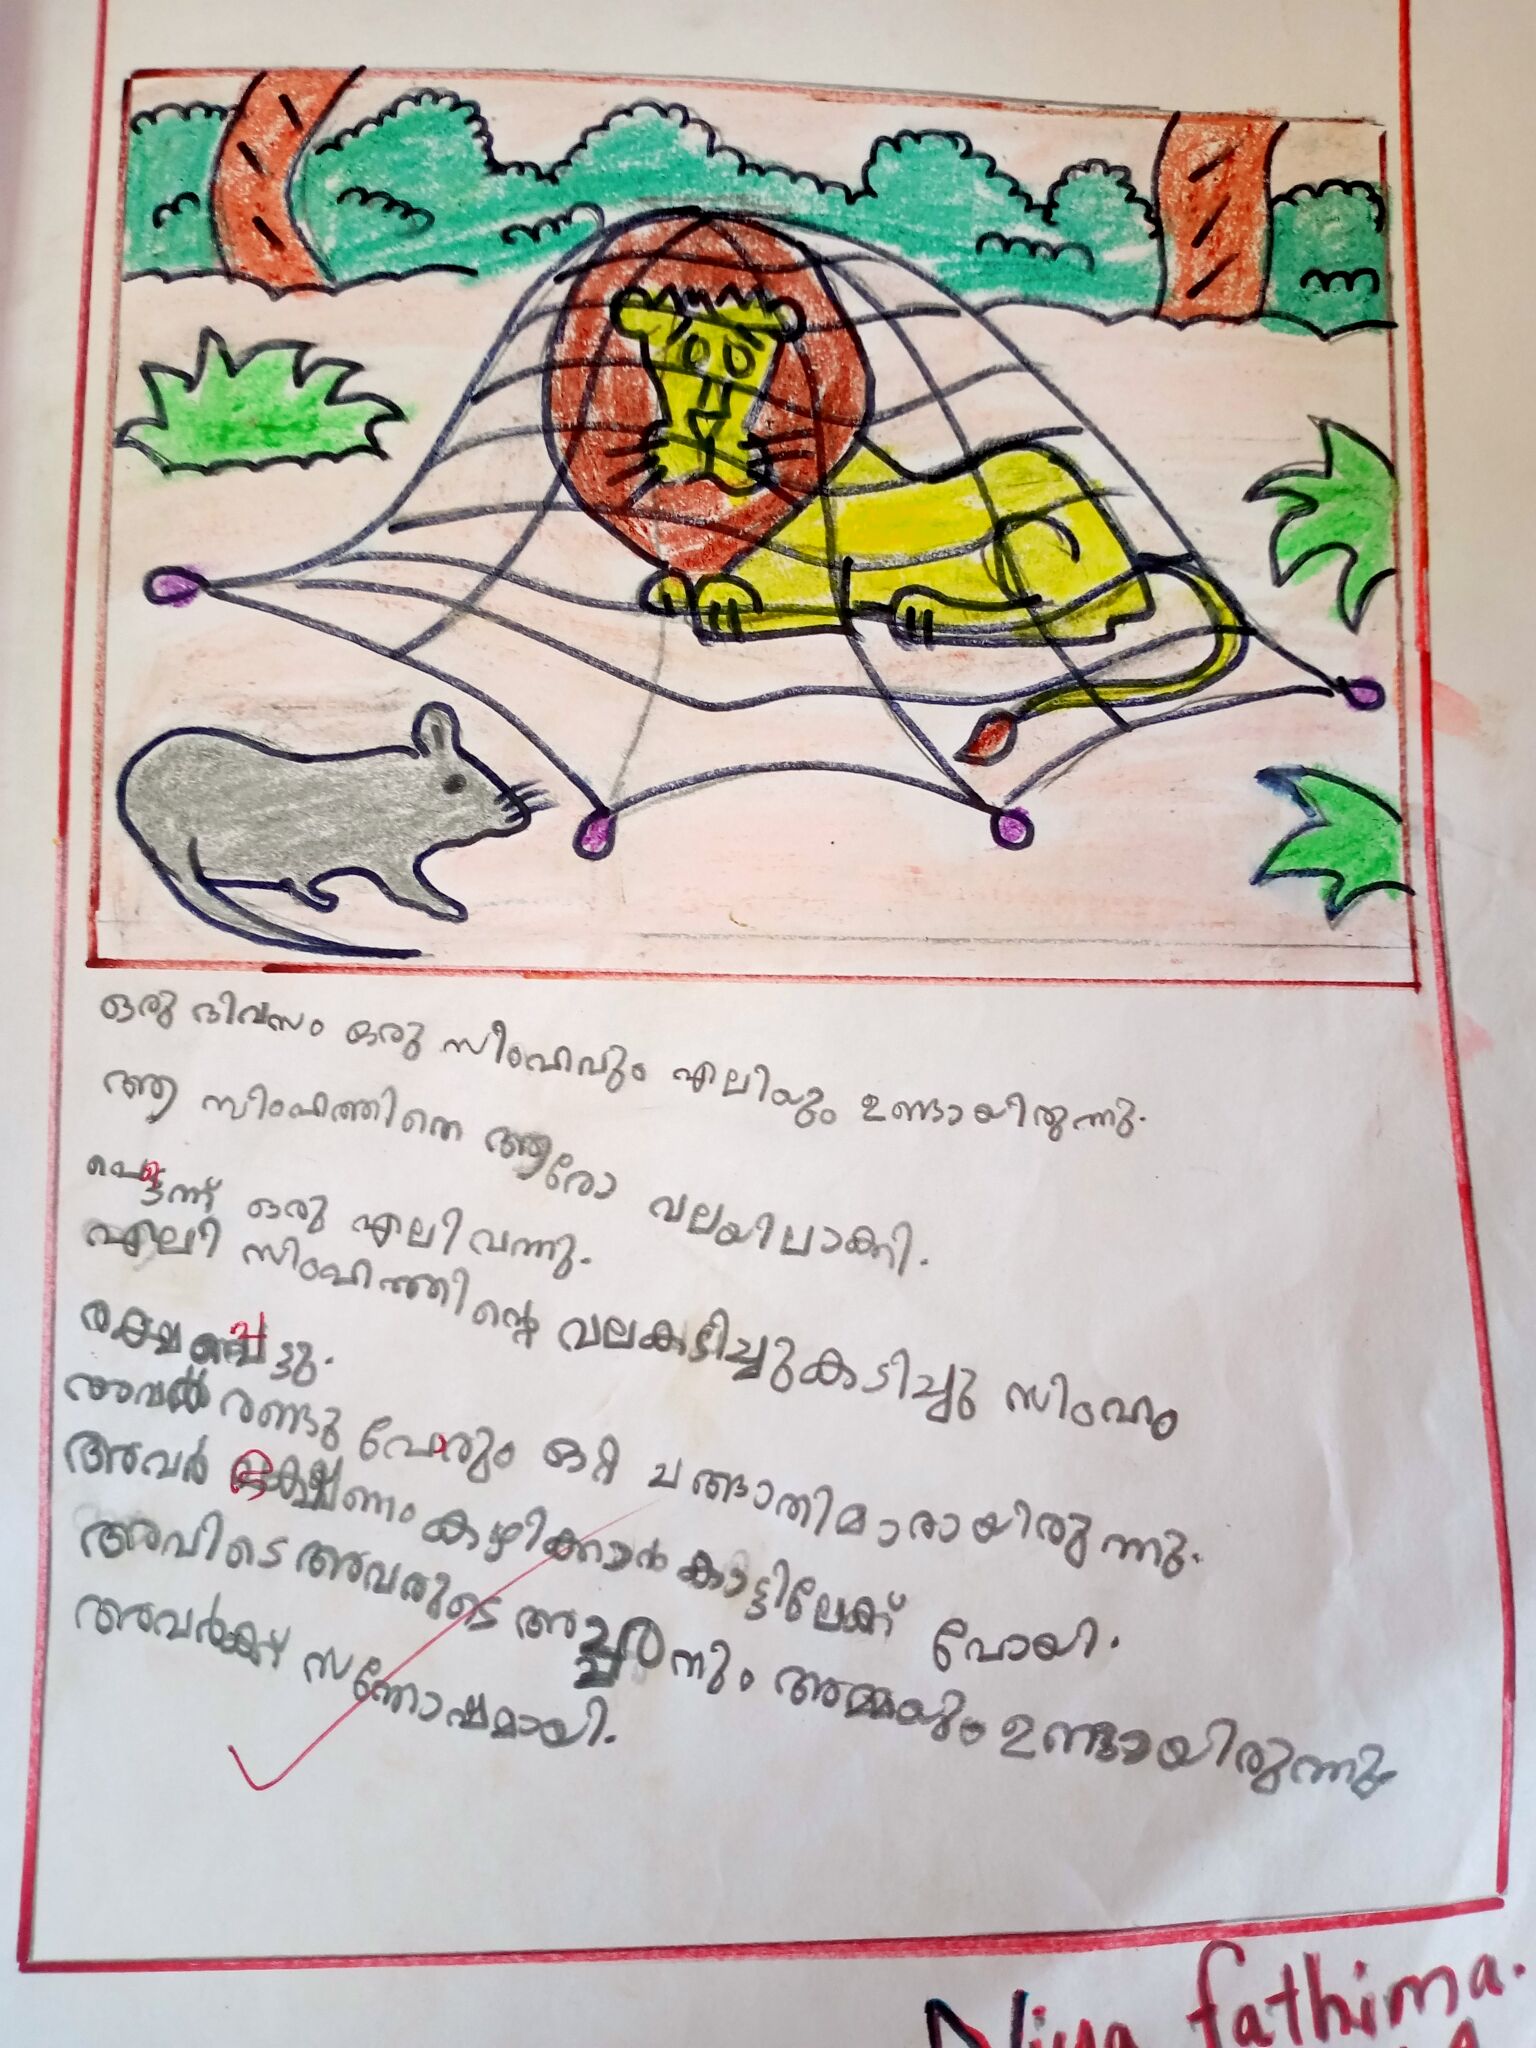 ഒരു ദിവസം ഒരു സിംഹവും എലിയും ഉണ്ടായിരുന്നു.
ആ സിംഹത്തിനെ ആരോ വലയിലാക്കി.
പെട്ടന്ന് ഒരു എലി വന്നു.
എലി സിംഹത്തിന്റെ വലകടിച്ചുകടിച്ചു സിംഹം
രക്ഷപ്പെട്ടു.
അവർ രണ്ടു പേരും ഒറ്റ ചങ്ങാതിമാരായിരുന്നു.
അവർ ഭക്ഷണം കഴിക്കാൻ കാട്ടിലേക്ക് പോയി.
അവിടെ അവരുടെ അച്ഛനും അമ്മയും ഉണ്ടായിരുന്നു.
അവർക്ക് സന്തോഷമായി.
fathima.